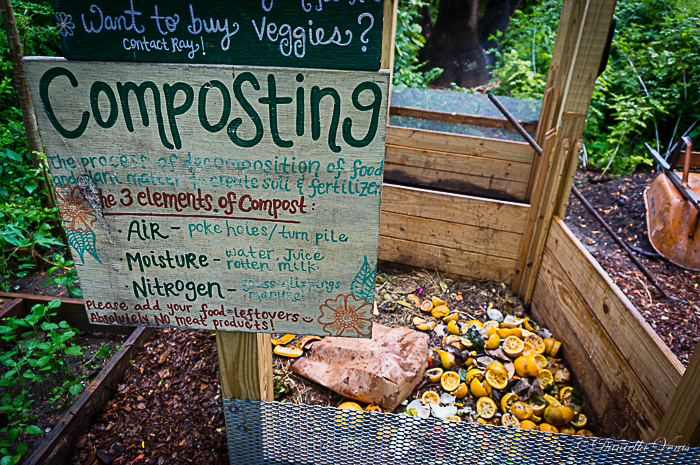 Want to buy Veggies?
Contact Ray!
Composting
the process of decomposition of food
and plant matter to create soil & fertilizer
The 3 elements of Compost:
· Air - poke holes/turn pile
· Moisture - water, juice
rotten milk.
· Nitrogen - grass clippings
manure
Please add your food leftovers
Absolutely NO meat products!